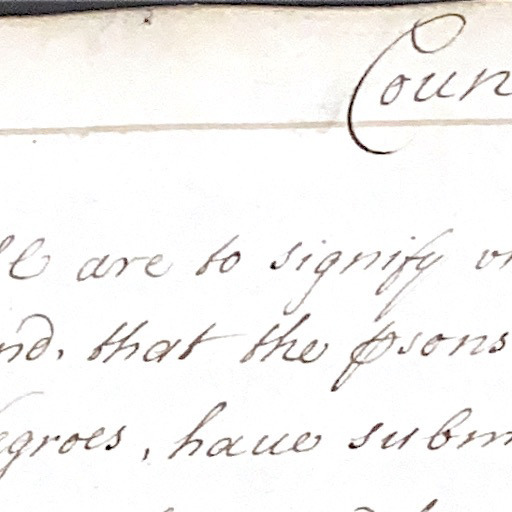 Coun
are to signify
nd, that the psons
egroes, haue subm